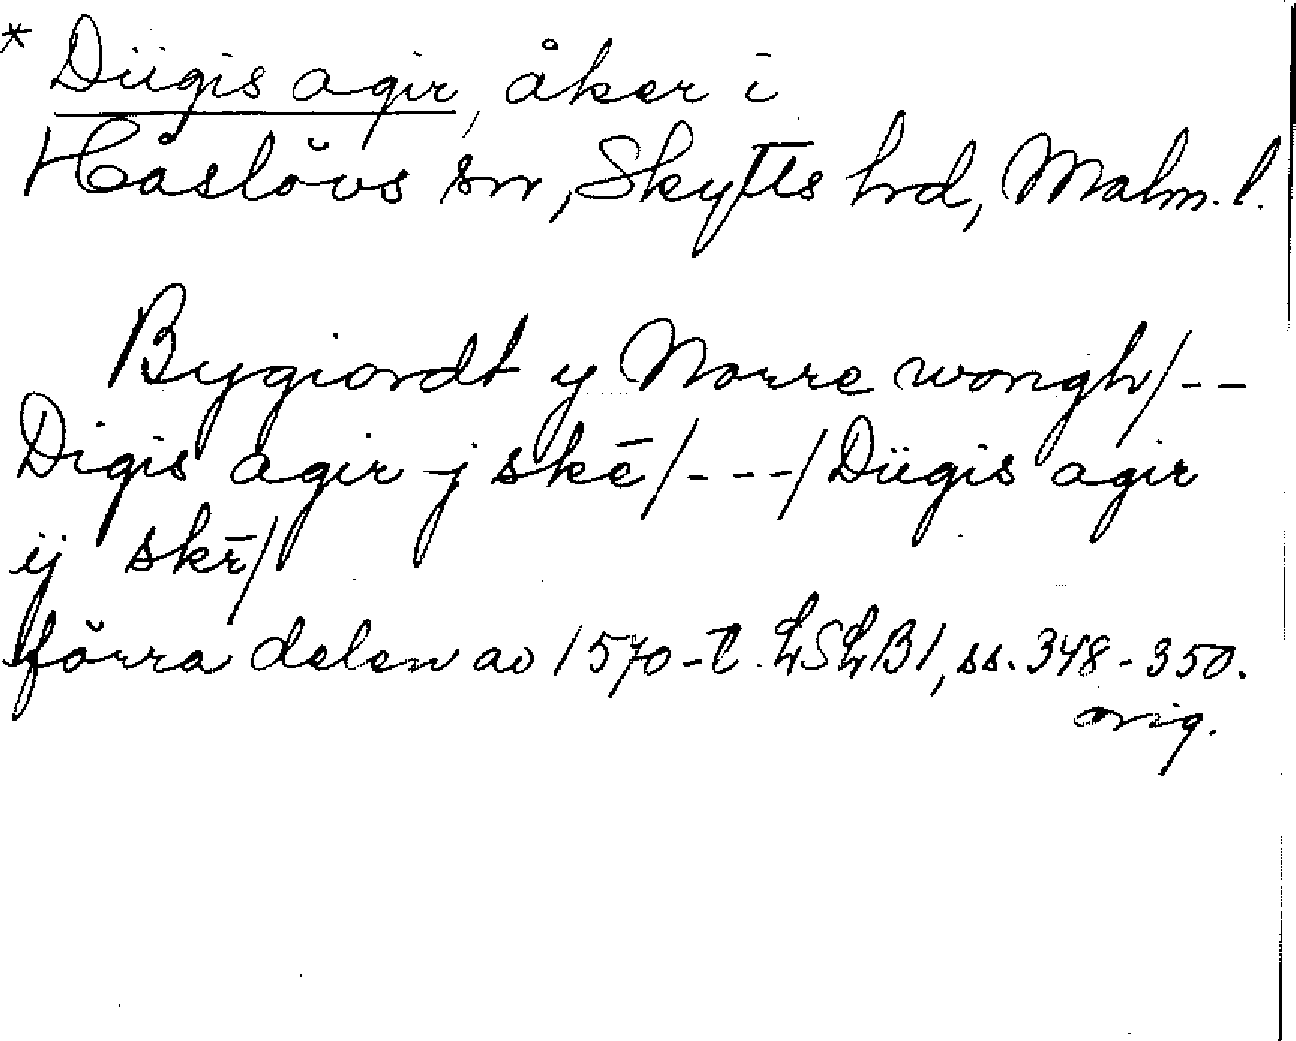 * Diigis agir, åker i
Håslövs sn, Skytts hrd, Malm. l.
Bygiordt y Norre wongh/--
Digis agir -j skē/---/Diigis agir
ij skē/
förra delen av 1570-t. LSLB1, ss. 348-350.
orig.